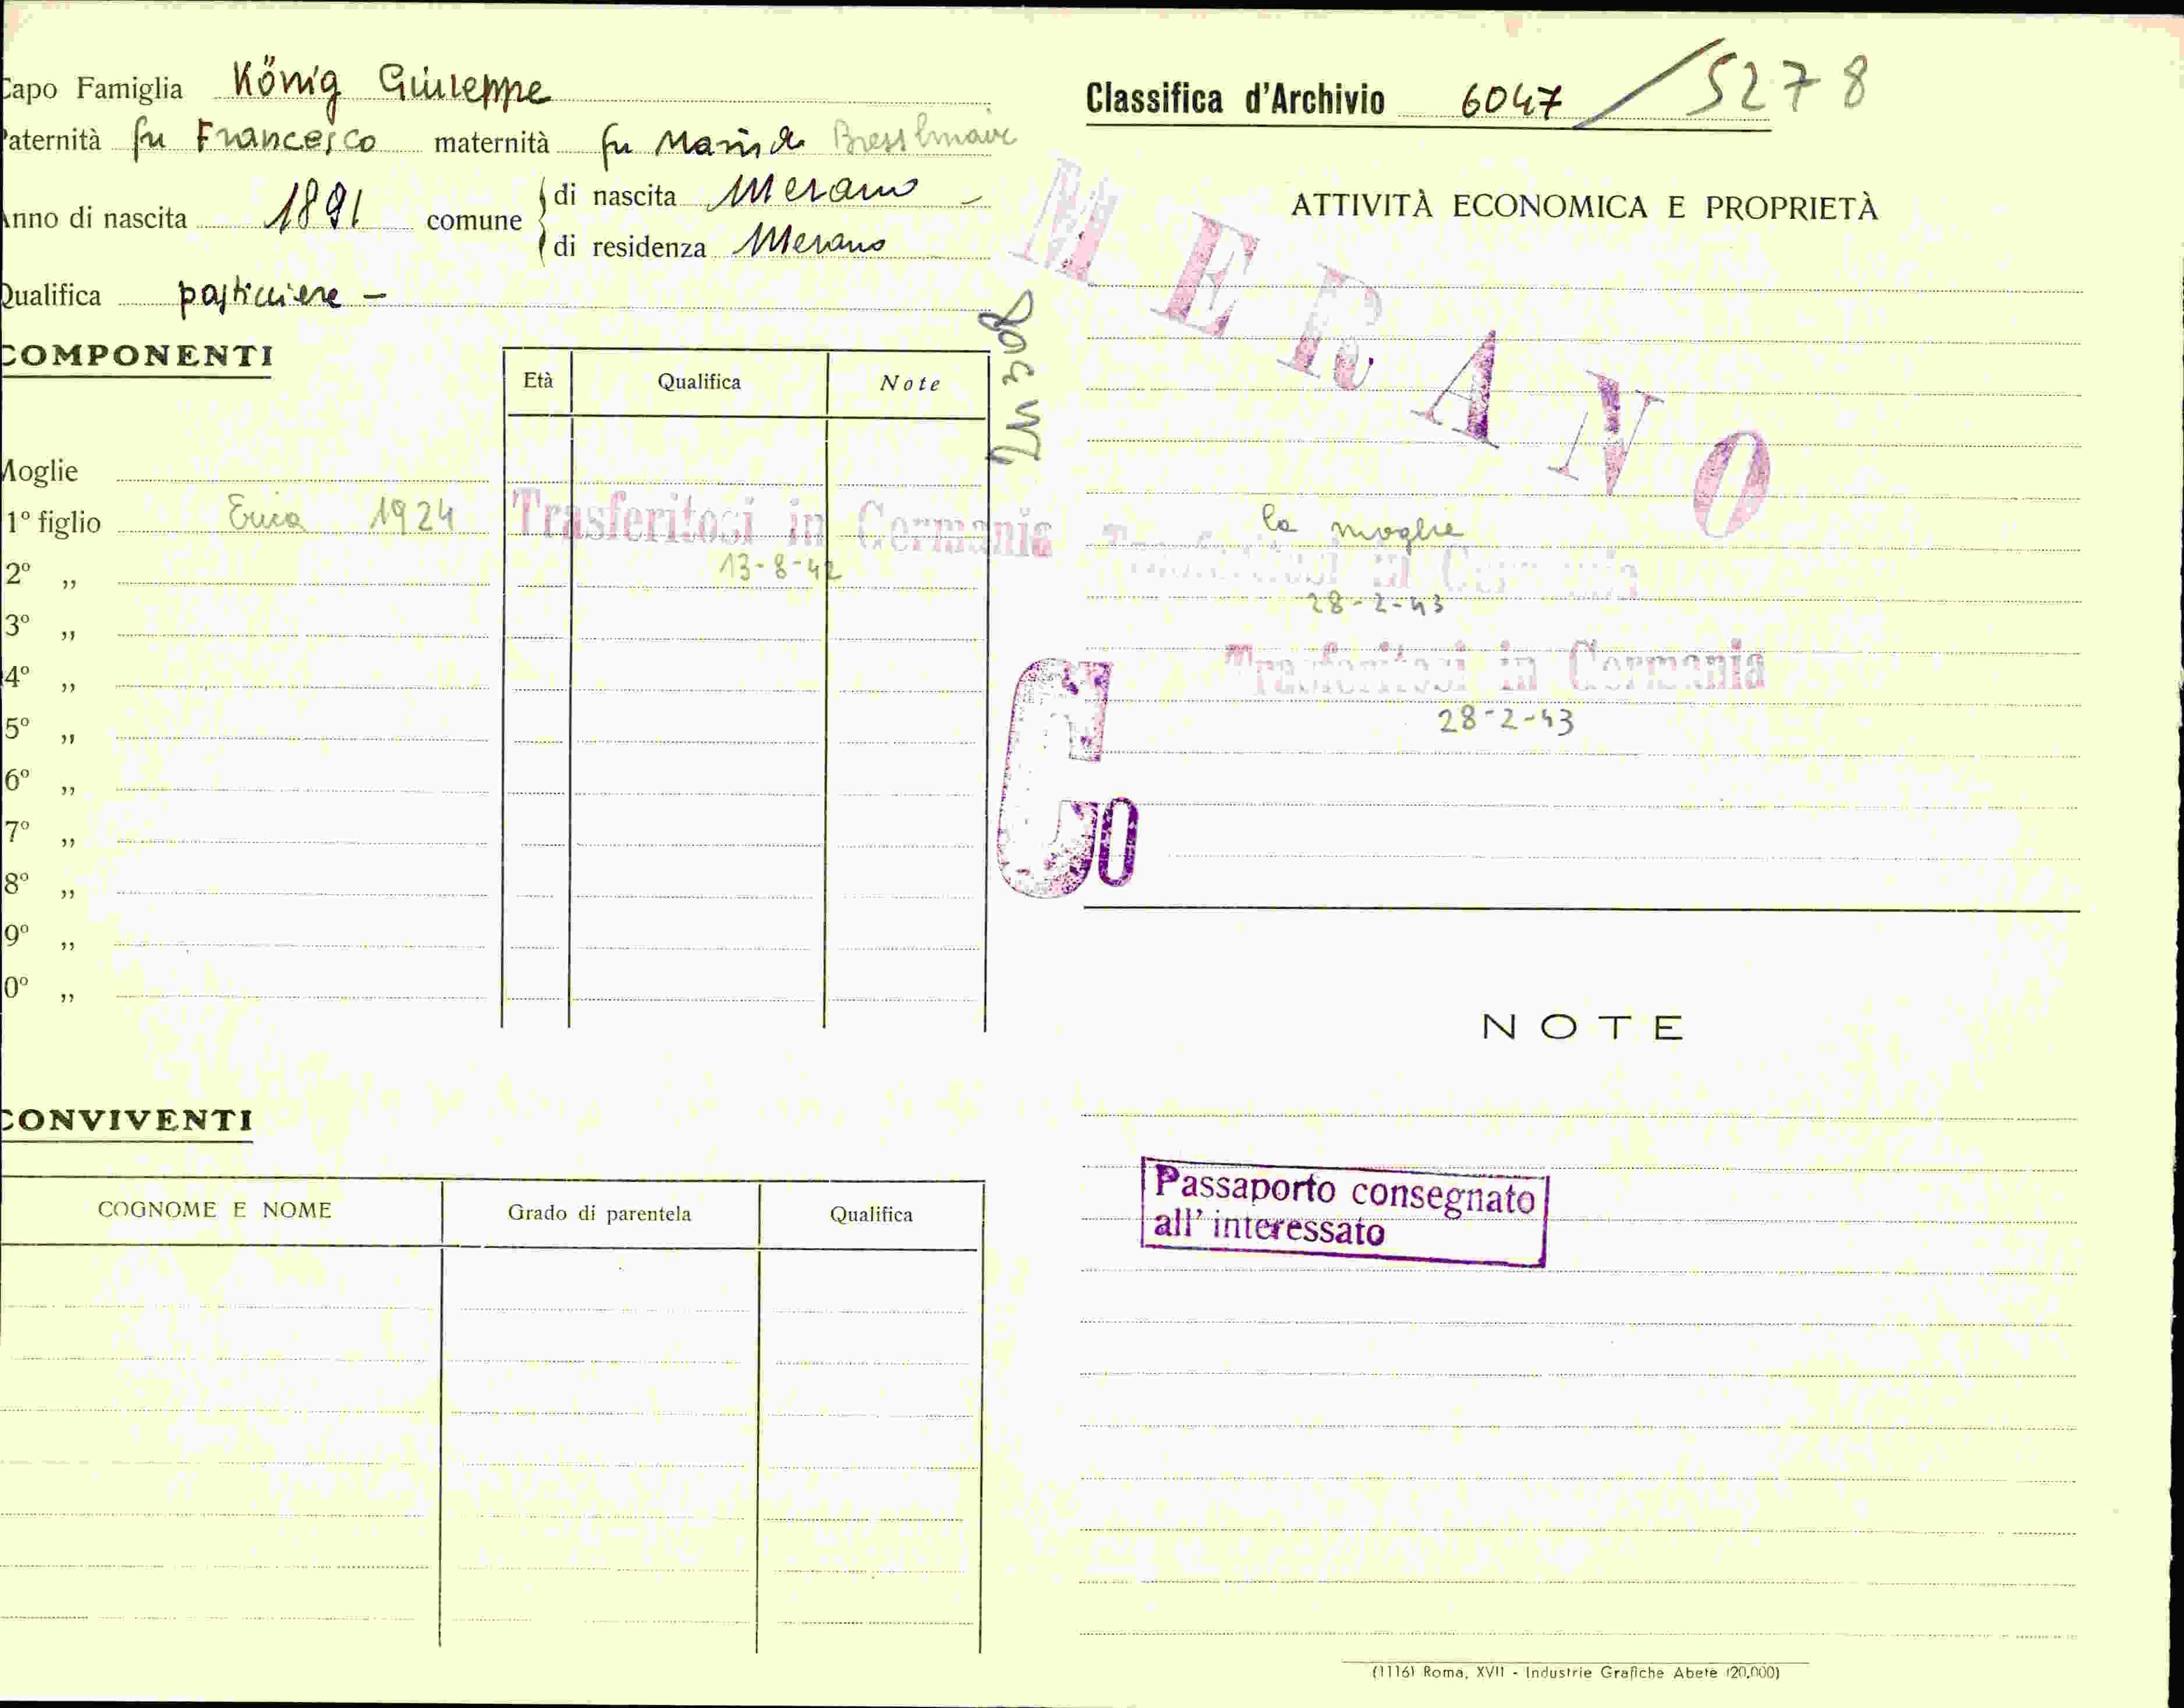 Capo Famiglia König Giuseppe
Paternità fu Francesco maternità fu Maria
Anno di nascita 1891 comune di nascita Merano –
di residenza Merano
Qualifica pasticciere –
COMPONENTI
Età Qualifica Note
Moglie
1º figlio Erica 1924 Trasferitosi in Germania
13-8-42
2º ,,
3º ,,
4º ,,
5º ,,
6º ,,
7º ,,
8º ,,
9º ,,
0º ,,
CONVIVENTI
COGNOME E NOME Grado di parentela Qualifica
Classifica d'Archivio 6047 / 5278
ATTIVITÀ ECONOMICA E PROPRIETÀ
MERANO
la moglie
Trasferitosi in Germania
28-2-43
Trasferitosi in Germania
28-2-43
NOTE
Passaporto consegnato
all' interessato
(1116) Roma, XVII - Industrie Grafiche Abete (20.000)